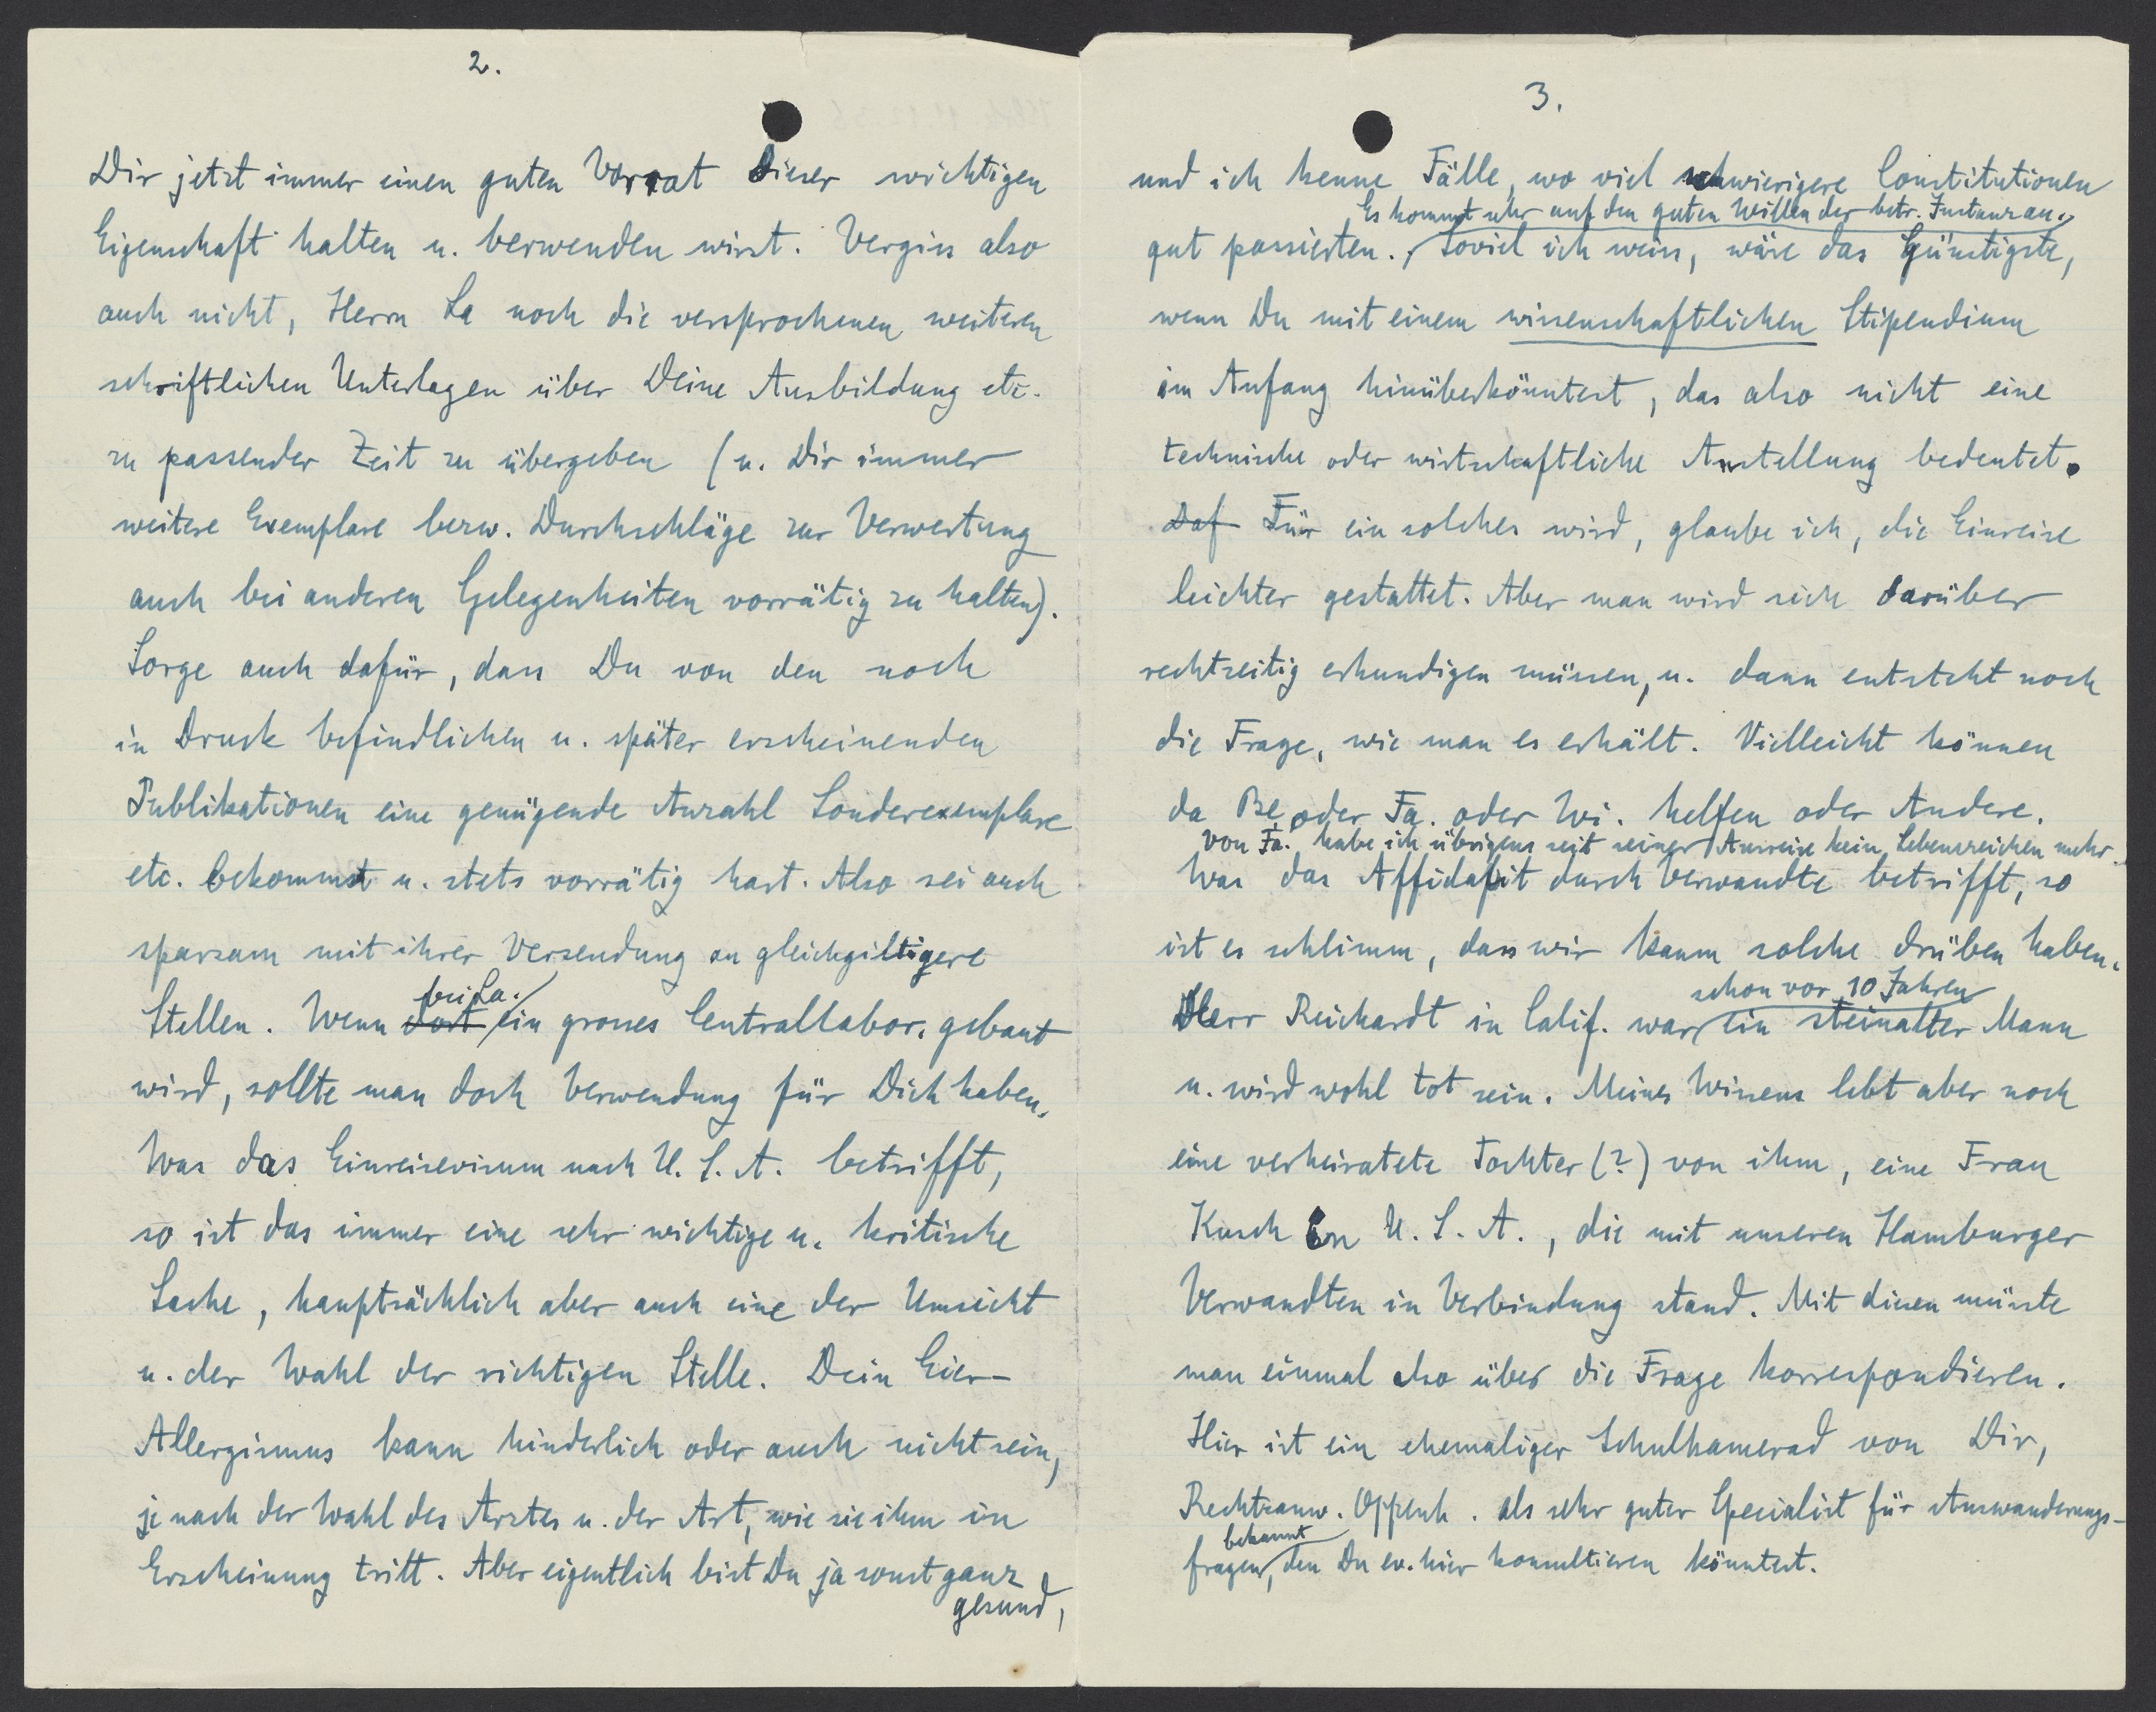 2.
Dir jetzt immer einen guten Vorrat dieser wichtigen
Eigenschaft halten u. verwenden wirst. Vergiss also
auch nicht, Herrn La noch die versprochenen weiteren
schriftlichen Unterlagen über Deine Ausbildung etc.
zu passender Zeit zu übergeben (u. Dir immer
weitere Exemplare bezw. Durchschläge zur Verwertung
auch bei anderen Gelegenheiten vorrätig zu halten).
Sorge auch dafür, dass Du von den noch
in Druck befindlichen u. später erscheinenden
Publikationen eine genügende Anzahl Sonderexemplare
etc. bekommst u. stets vorrätig hast. Also sei auch
sparsam mit ihrer Versendung an gleichgiltigere
bei La.
Stellen. Wenn dort ein grosses Centrallabor. gebaut
wird, sollte man doch Verwendung für Dich haben.
Was das Einreisevisum nach U. S. A. betrifft,
so ist das immer eine sehr wichtige u. kritische
Sache, hauptsächlich aber auch eine der Umsicht
u. der Wahl der richtigen Stelle. Dein Eier-
Allergismus kann hinderlich oder auch nicht sein,
je nach der Wahl des Arztes u. der Art, wie sie ihm in
Erscheinung tritt. Aber eigentlich bist Du ja sonst ganz
gesund,
3.
und ich kenne Fälle, wo viel schwierigere Constitutionen
Es kommt sehr auf den guten Willen der betr. Instanz an.
gut passierten. Soviel ich weiss, wäre das Günstigste,
wenn Du mit einem wissenschaftlichen Stipendium
im Anfang hinüberkönntest, das also nicht eine
technische oder wirtschaftliche Anstellung bedeutet.
Daf Für ein solches wird, glaube ich, die Einreise
leichter gestattet. Aber man wird sich darüber
rechtzeitig erkundigen müssen, u. dann entsteht noch
die Frage, wie man es erhält. Vielleicht können
da Be. oder Fa. oder Wi. helfen oder Andere.
Von Fa. habe ich übrigens seit seiner Ausreise kein Lebenszeichen mehr.
Was das Affidafit durch Verwandte betrifft, so
ist es schlimm, dass wir kaum solche drüben haben.
schon vor 10 Jahren
Herr Reichardt in Calif. war ein steinalter Mann
u. wird wohl tot sein. Meines Wissens lebt aber noch
eine verheiratete Tochter (?) von ihm, eine Frau
Kusch in U. S. A., die mit unseren Hamburger
Verwandten in Verbindung stand. Mit diesen müsste
man einmal also über die Frage korrespondieren.
Hier ist ein ehemaliger Schulkamerad von Dir,
Rechtsanw. Oppenh. als sehr guter Specialist für Auswanderungs-
bekannt
fragen, den Du ev. hier konsultieren könntest.